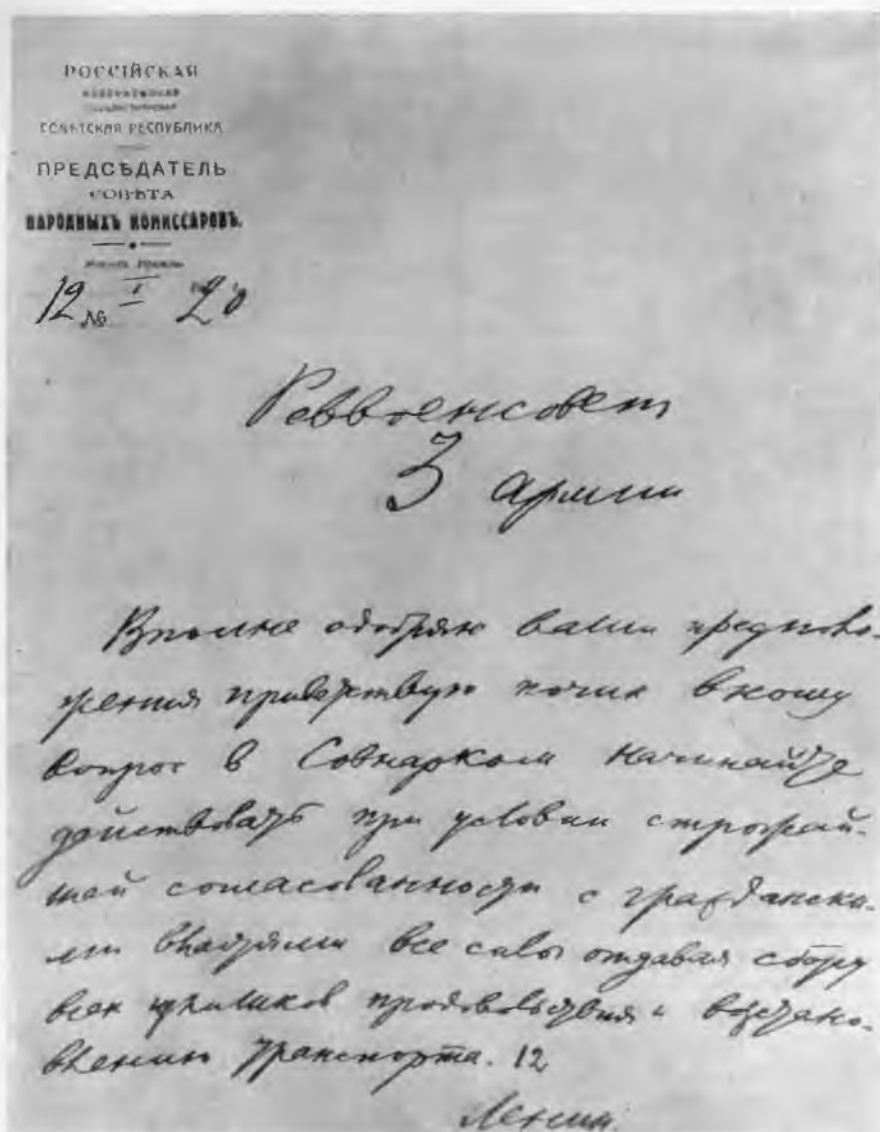 РОССІЙСКАЯ
СОВѢТСКАЯ РЕСПУБЛИКА
ПРЕДСѢДАТЕЛЬ
СОВѢТА
НАРОДНЫХЪ КОМИССАРОВЪ.
12 № I 20
Реввоенсовет
3 армии
Вполне одобряю ваши предполо-
жения приветствую почин вношу
вопрос в Совнарком начинайте
действовать при условии строжай-
шей согласованности с граждански-
ми властями все силы отдавая сбору
всех излишков продовольствия и восстано-
влению транспорта. 12
Ленин.